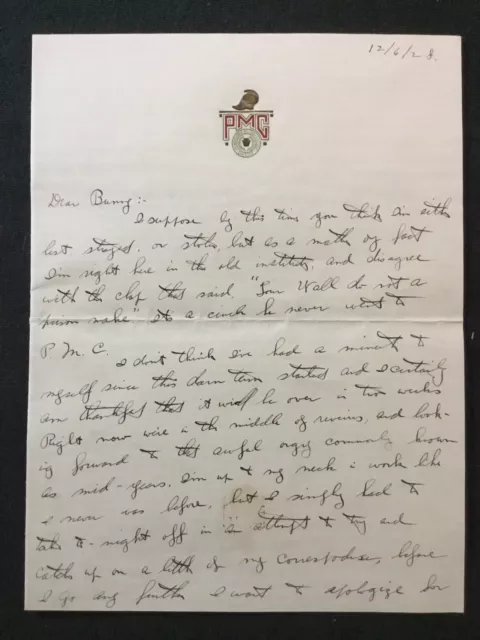 12/6/28.
PMC
Dear Bunny:-
I suppose by this time you think I'm either
lost, strayed, or stolen, but as a matter of fact
I'm right here in the old institute, and disagree
with the chap that said, "Four Walls do not a
prison make." It's a cinch he never went to
P.M.C.
I don't think I've had a minute to
myself since this darn term started and I certainly
am thankful that it will be over in two weeks
Right now we're in the middle of reviews, and look-
ing forward to that awful orgy commonly known
as mid-years. I'm up to my neck in work like
I never was before, but I simply had to
take to-night off in an attempt to try and
catch up on a little of my correspondence, before
I go any further I want to apologize for